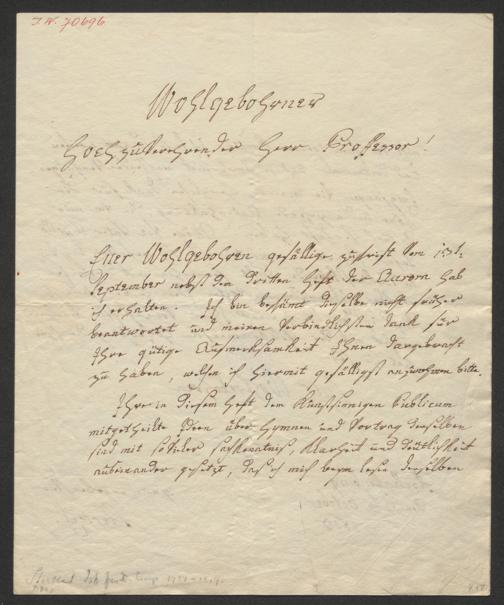 I.N. 70696
Wohlgebohrner
Hochzuverehrender Herr Professor!
Euer Wohlgebohren gefällige Zuschrift vom
September nebst dem dritten Heft der Aurora hab
ich erhalten. Ich bin beschämt dieselbe nicht früher
beantwortet und meinen verbindlichsten Dank für
Ihre gütige Aufmerksamkeit Ihnen dargebracht
zu haben, welchen ich hiermit gefälligst anzunehmen bitte.
Ihre in diesem Heft dem Kunstsinnigen Publicum
mitgetheilte Ideen über Hymnen und Vortrag derselben
sind mit so vieler Sachkenntniß, Klarheit und Deutlichkeit
auseinander gesetzt, daß ich mich beym lesen derselben